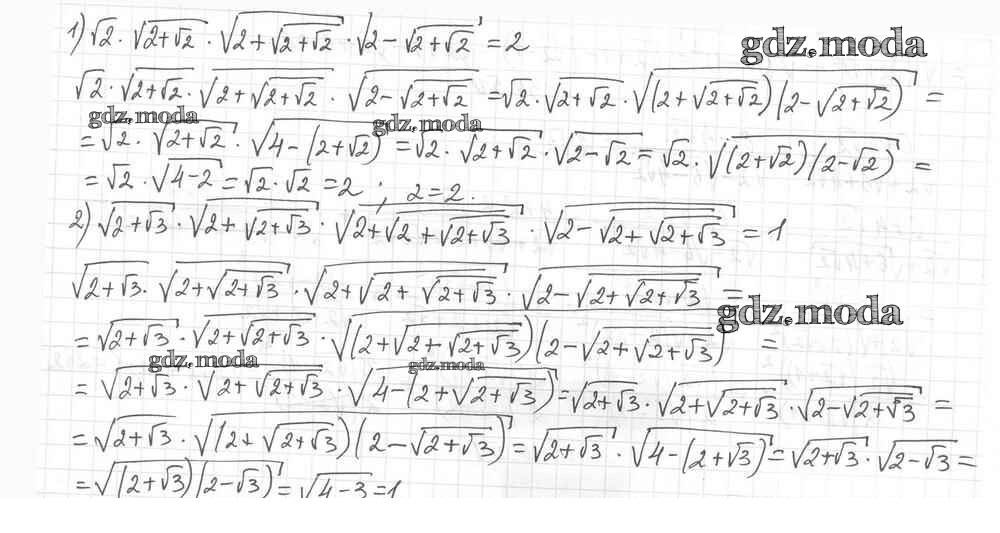 1) √2 · √(2+√2) · √(2+√(2+√2)) · √(2-√(2+√2)) = 2
gdz.moda
√2 · √(2+√2) · √(2+√(2+√2)) · √(2-√(2+√2)) = √2 · √(2+√2) · √((2+√(2+√2))(2-√(2+√2))) =
gdz.moda gdz.moda
= √2 · √(2+√2) · √(4-(2+√2)) = √2 · √(2+√2) · √(2-√2) = √2 · √((2+√2)(2-√2)) =
= √2 · √(4-2) = √2 · √2 = 2 ; 2=2.
2) √(2+√3) · √(2+√(2+√3)) · √(2+√(2+√(2+√3))) · √(2-√(2+√(2+√3))) = 1
√(2+√3) · √(2+√(2+√3)) · √(2+√(2+√(2+√3))) · √(2-√(2+√(2+√3))) =
gdz.moda
= √(2+√3) · √(2+√(2+√3)) · √((2+√(2+√(2+√3)))(2-√(2+√(2+√3)))) =
gdz.moda gdz.moda
= √(2+√3) · √(2+√(2+√3)) · √(4-(2+√(2+√3))) = √(2+√3) · √(2+√(2+√3)) · √(2-√(2+√3)) =
= √(2+√3) · √((2+√(2+√3))(2-√(2+√3))) = √(2+√3) · √(4-(2+√3)) = √(2+√3) · √(2-√3) =
= √((2+√3)(2-√3)) = √(4-3) = 1